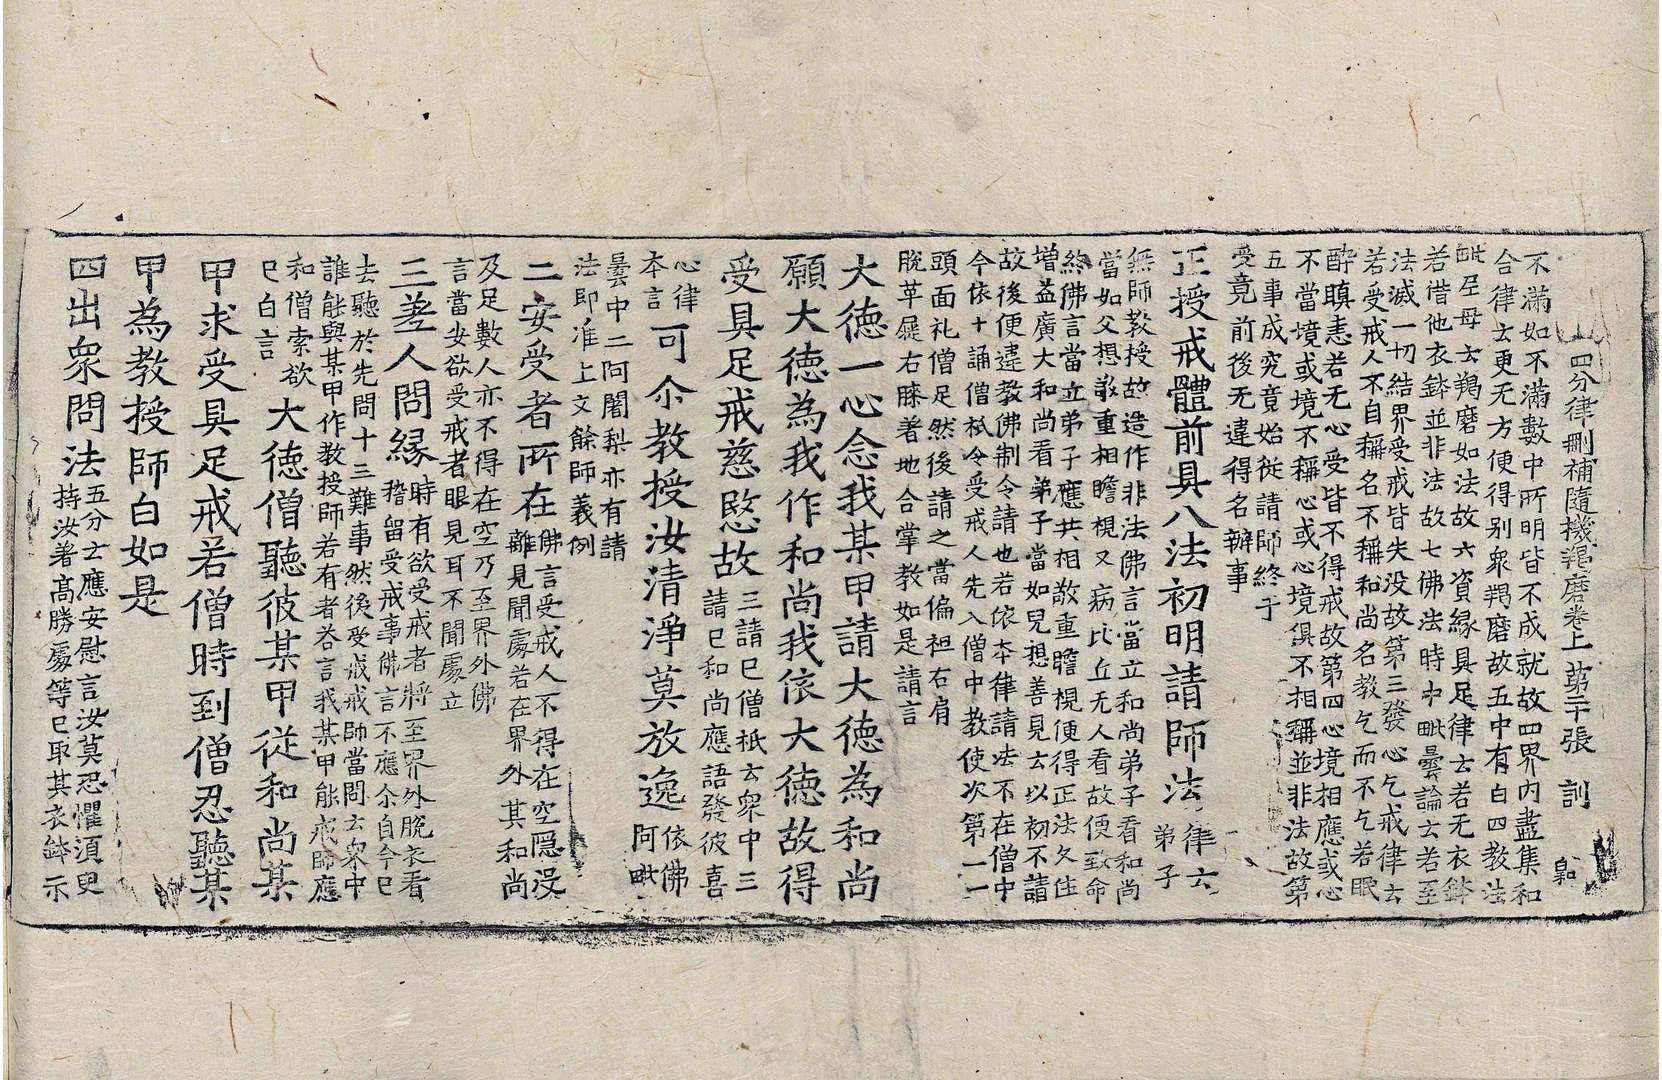 四分律刪補隨機羯磨卷上 第二十張 訓
不滿如不滿數中所明皆不成就故四界內盡集和
合律云更无方便得别衆羯磨故五中有白四教法
毗尼母云羯磨如法故六資縁具足律云若无衣鉢
若借他衣鉢並非法故七佛法時中毗曇論云若至
法滅一切結界受戒皆失没故第三發心乞戒律云
若受戒人不自稱名不稱和尚名教乞而不乞若眠
醉瞋恚若无心受皆不得戒故第四心境相應或心
不當境或境不稱心或心境俱不相稱並非法故第
五事成究竟始從請師終于
受竟前後无違得名辦事
正授戒體前具八法初明請師法
律云
弟子
無師教授故造作非法佛言當立和尚弟子看和尚
當如父想敬重相瞻視又病比丘无人看故便致命
終佛言當立弟子應共相敬重瞻視便得正法久住
增益廣大和尚看弟子當如兒想善見云以初不請
故後便違教佛制令請也若依本律請法不在僧中
今依十誦僧祇令受戒人先入僧中教使次第一一
頭面礼僧足然後請之當偏袒右肩
脫草屣右膝著地合掌教如是請言
大德一心念我某甲請大德為和尚
願大德為我作和尚我依大德故得
受具足戒慈愍故
三請已僧祇云衆中三
請已和尚應語發彼喜
心律
本言
可尒教授汝清淨莫放逸
依佛
阿毗
曇中二阿闍梨亦有請
法即准上文餘師義例
二安受者所在
佛言受戒人不得在空隱没
離見聞處若在界外其和尚
及足數人亦不得在空乃至界外佛
言當安欲受戒者眼見耳不聞處立
三差人問縁
時有欲受戒者將至界外脫衣看
稽留受戒事佛言不應尒自今已
去聽於先問十三難事然後受戒戒師當問云衆中
誰能與某甲作教授師若有者答言我某甲能戒師應
和僧索欲
已白言
大德僧聽彼某甲從和尚某
甲求受具足戒若僧時到僧忍聽某
甲為教授師白如是
四出衆問法
五分云應安慰言汝莫恐懼須臾
持汝著高勝處等已取其衣鉢示